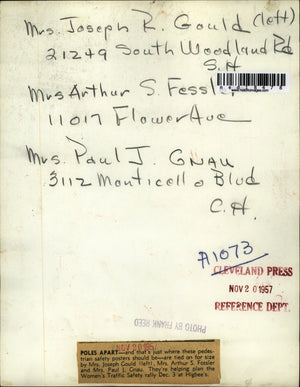 Mrs. Joseph R. Gould (left)
21249 South Woodland Rd
S.H
Mrs Arthur S. Fessler
11017 Flower Ave
Mrs. Paul J. Gnau
3112 Monticello Blvd
C.H.
A1073
CLEVELAND PRESS
NOV 20 1957
REFERENCE DEPT.
PHOTO BY FRANK REED
NOV 20 1957
POLES APART—and that's just where these pedes-
trian safety posters should be—are tied on for size
by Mrs. Joseph Gould (left), Mrs. Arthur S. Fessler
and Mrs. Paul J. Gnau. They're helping plan the
Women's Traffic Safety rally Dec. 3 at Higbee's.